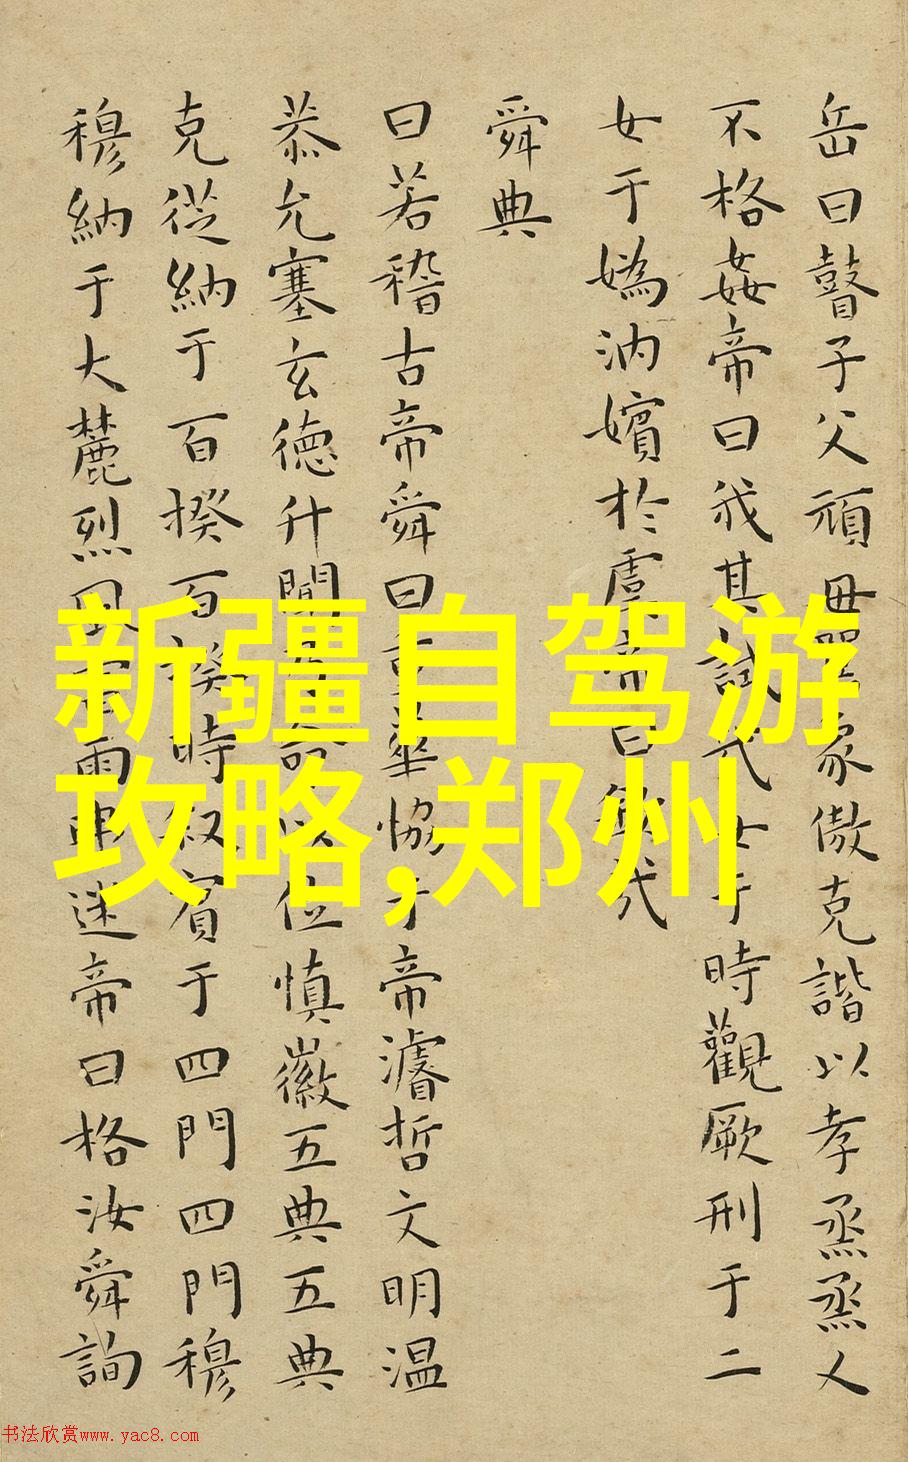 岳曰瞽子父頑毋嚚象傲克諧以孝烝烝乂
不格姦帝曰我其試哉女于時觀厥刑于二
女于媯汭嬪於虞帝曰欽哉
舜典
曰若稽古帝舜曰重華協于帝濬哲文明温
恭允塞玄德升聞乃命以位慎徽五典五典
克從納于百揆百揆時叙賓于四門四門穆
穆納于大麓烈風雷雨弗迷帝曰格汝舜詢
新疆自驾游
攻略,郑州
书法欣赏www.yac8.com